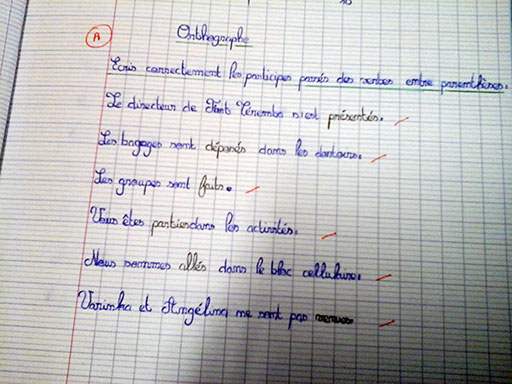 A
Orthographe
Ecris correctement les participes passés des verbes entre parenthèses.
Le directeur de s'est présentés.
Les bagages sont déposés dans les dortoirs.
Les groupes sont faits.
Vous êtes parties dans les activités.
Nous sommes allés dans le bloc cellulaire.
Varinka et Angélina ne sont pas